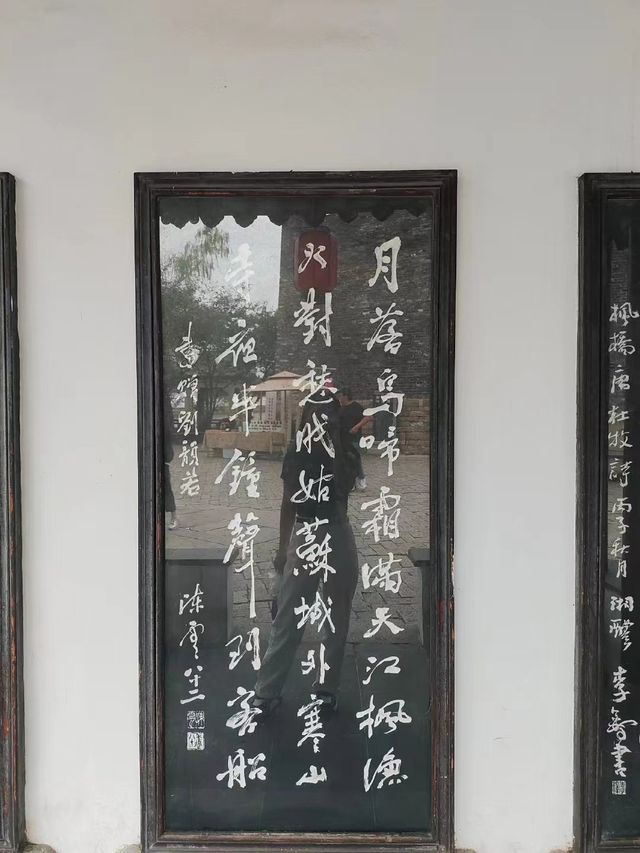 楓橋唐杜牧詩丙子秋月湘醴李鐸書
月落烏啼霜滿天江楓漁
火對愁眠姑蘇城外寒山
寺夜半鐘聲到客船
書贈劉若
陈雲八十二